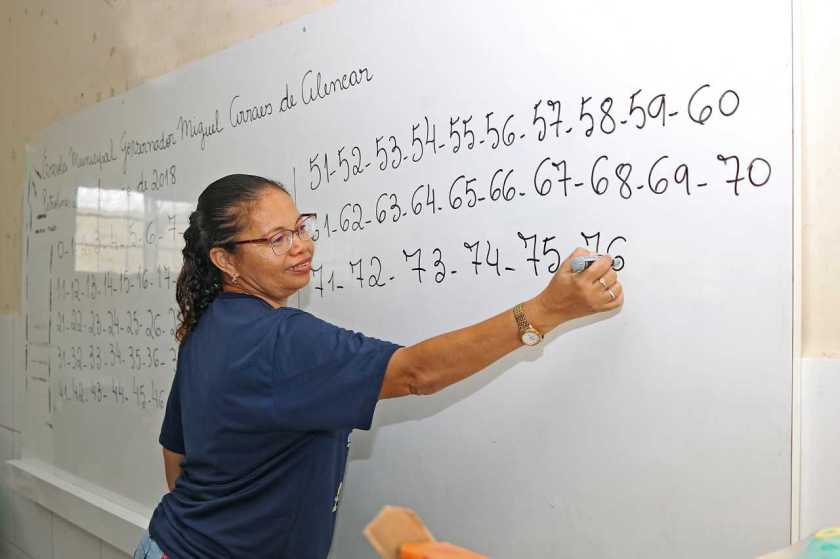 Escola Municipal Governador Miguel Arraes de Alencar
Petrolina de 2018
51-52-53-54-55-56-57-58-59-60
61-62-63-64-65-66-67-68-69-70
71-72-73-74-75-76
11-12-13-14-15-16-17
21-22-23-24-25-26
31-32-33-34-35-36
41-42-43-44-45-46